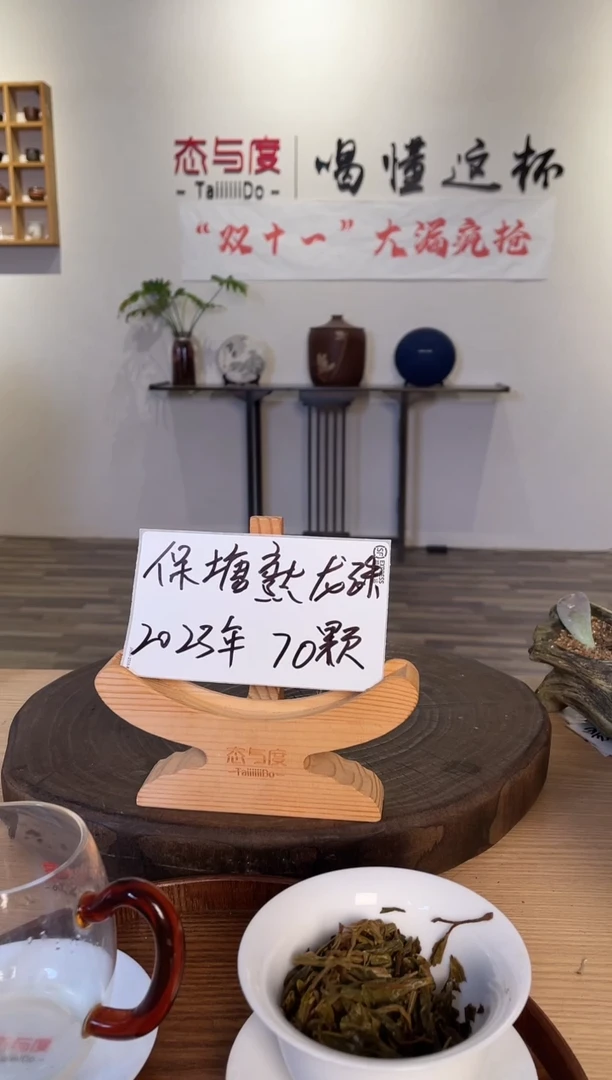 态与度
- TaiiiiiiDo -
喝懂这杯
“双十一”大漏疯抢
保塘熟龙珠
2023年 70颗
态与度
-TaiiiiiiDo-